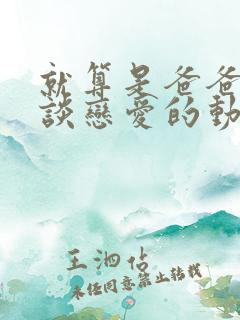 就算是爸爸
談戀愛的動
王泗佔
未经同意禁止转载